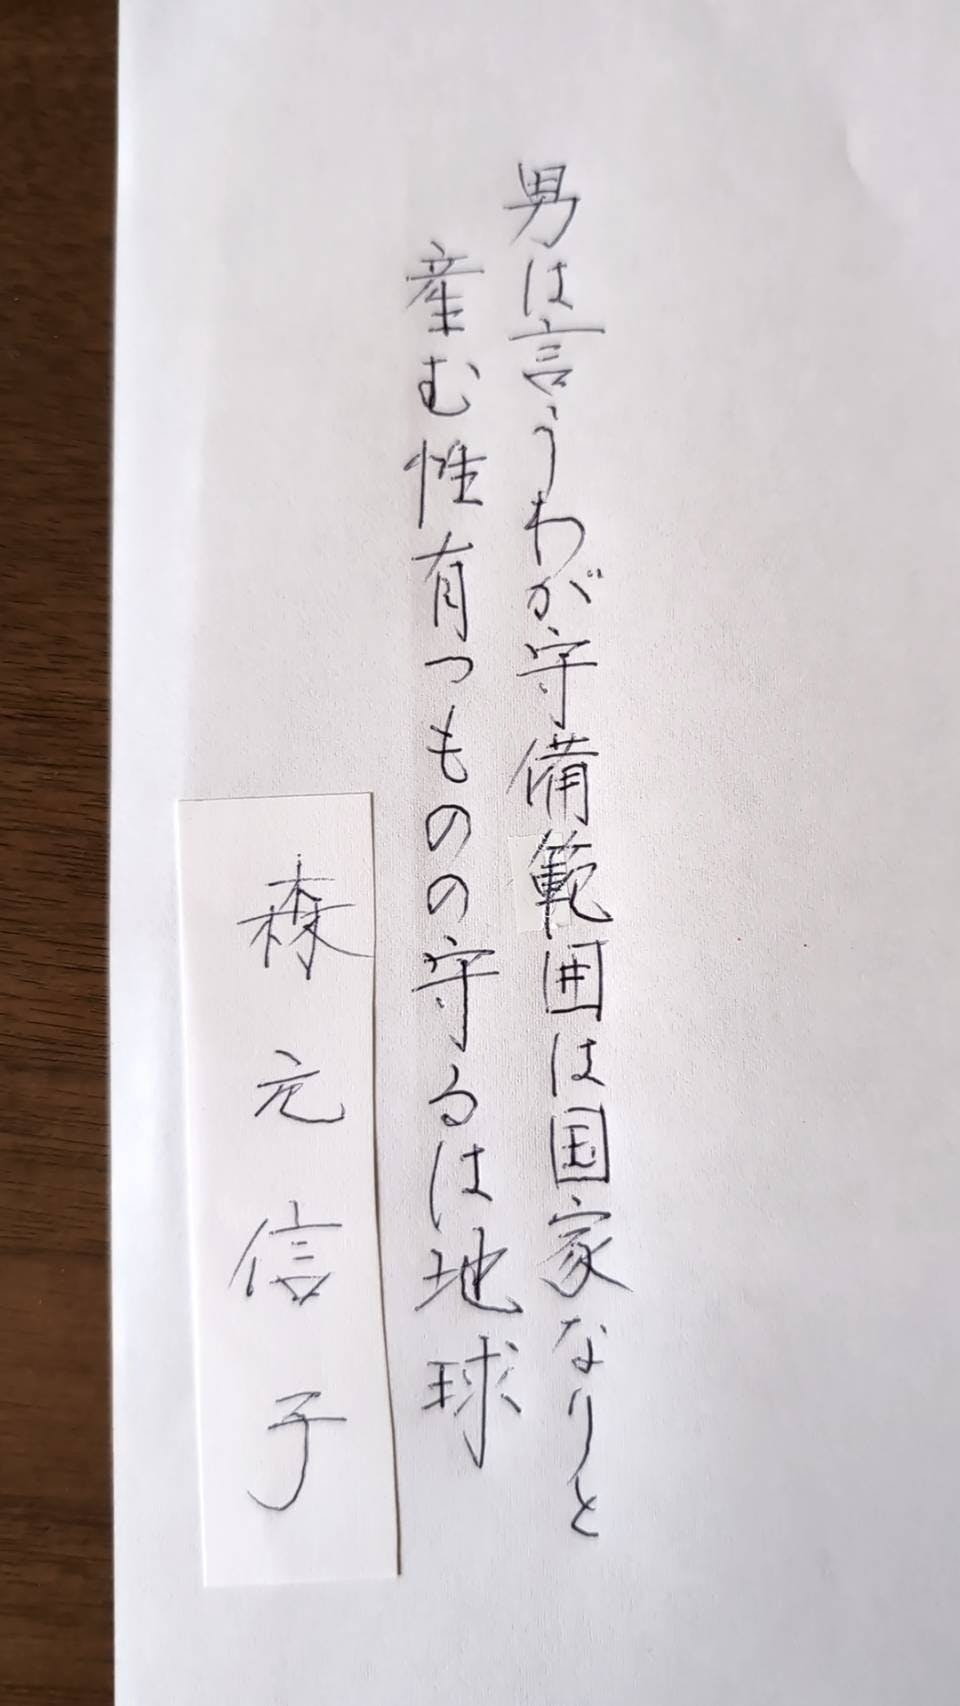 男は言うわが守備範囲は国家なりと
産む性有つものの守るは地球
森元信子